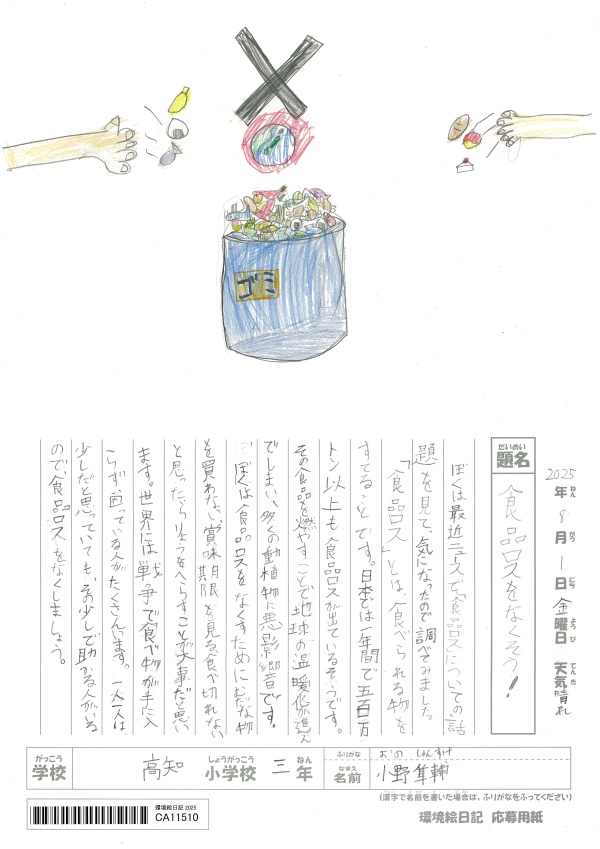 ゴミ
2025年8月1日金曜日 天気晴れ
ねん がつ にち よう び てん き
だいめい
題名
食品ロスをなくそう!
ぼくは最近ニュースで食品ロスについての話
題を見て、気になったので調べてみました。
「食品ロス」とは、食べられる物を
すてることです。日本では一年間で五百万
トン以上も食品ロスが出ているそうです。
その食品を燃やすことで地球の温暖化が進ん
でしまい、多くの動植物に悪影響です。
ぼくは食品ロスをなくすためにむだな物
を買わない、賞味期限を見る、食べ切れない
と思ったらりょうをへらすことが大事だと思い
ます。世界には戦争で食べ物が手に入
らず困っている人がたくさんいます。一人一人は
少しだと思っていても、その少しで助かる人がいる
ので、食品ロスをなくしましょう。
がっこう
学校
高知
しょうがっこう
小学校
三
ねん
年
ふりがな
おの しゅんすけ
なまえ
名前
小野 隼輔
(漢字で名前を書いた場合は、ふりがなをふってください)
環境絵日記 2025
CA11510
環境絵日記 応募用紙